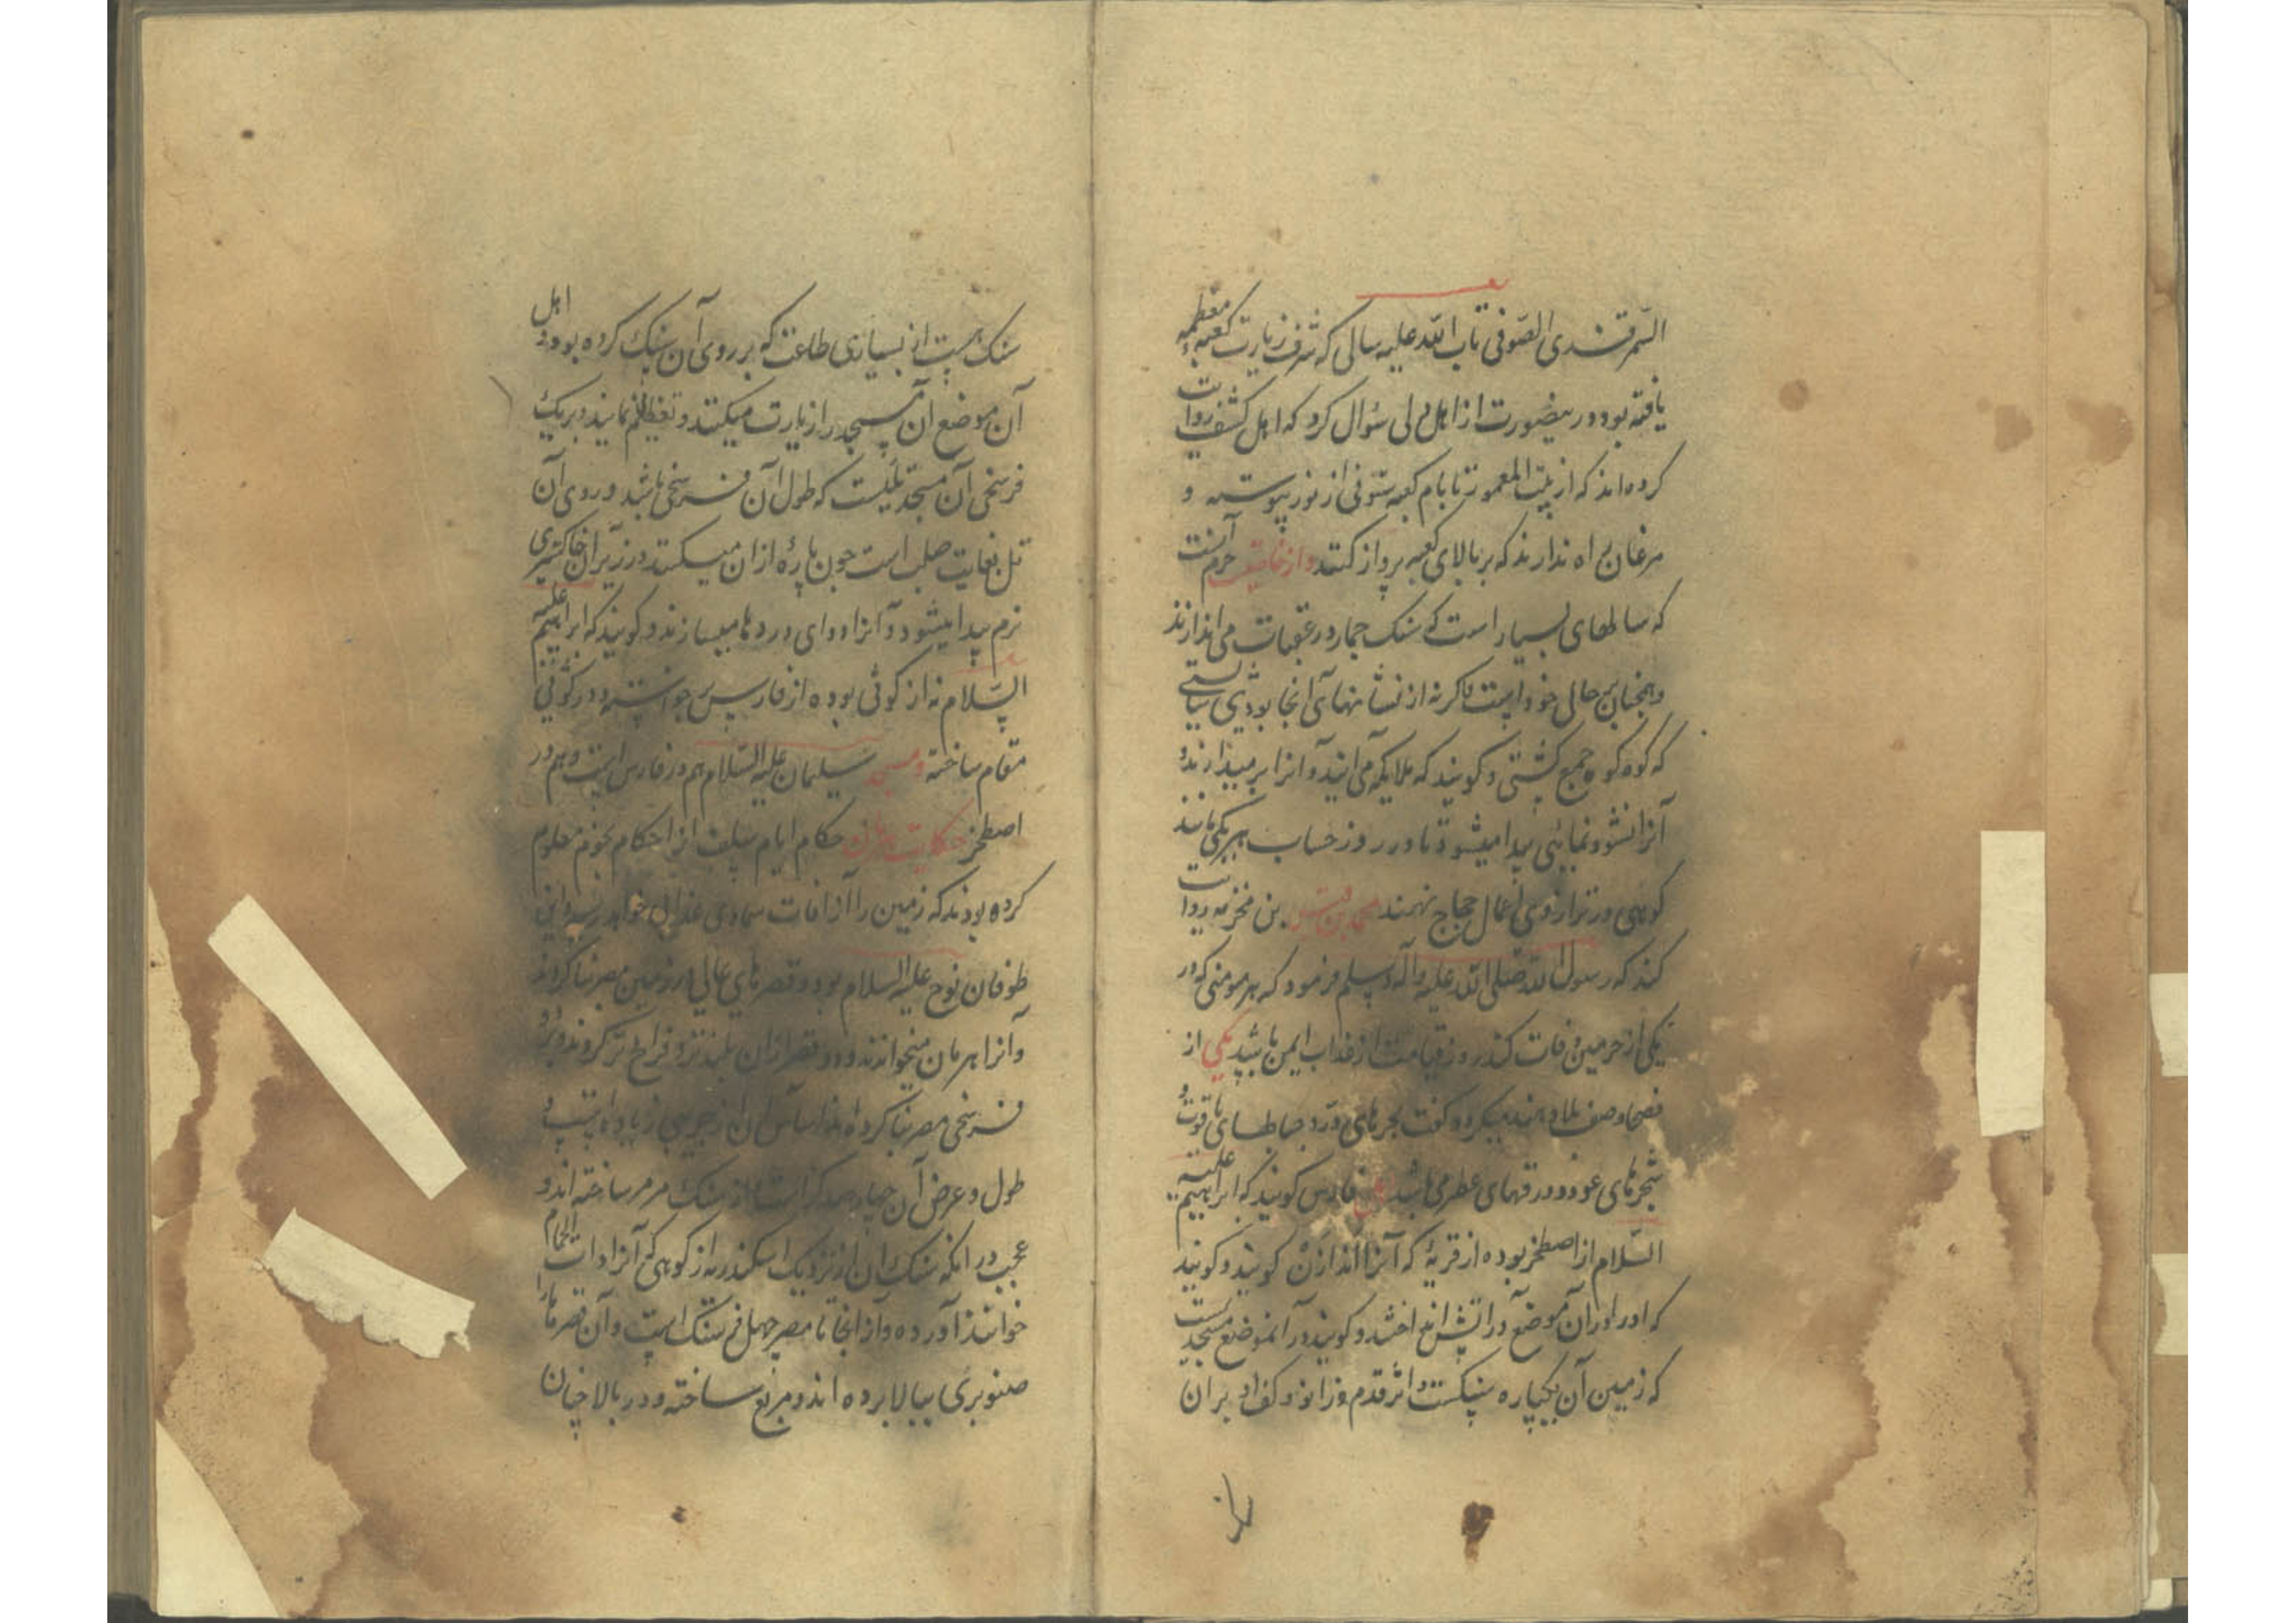 السمرقندی الصوفی تاب الله علیه سالی که شرف زیارت کعبه معظمه
یافته بود در بیضورت از اهل دلی سؤال کرد که اهل کشف روایت
کرده اند که از بیت المعمور تا بام کعبه ستونی از نور پیوسته و
مرغان راه ندارند که بر بالای کعبه پرواز کنند و از خاصیت حرم آنست
که سالهای بسیار است که سنک جمار در عقبات می اندازند
و همچنان بر حال خود است واکر نه از نشانهای آنجا بودی بایستی
که کوه کوه جمع کشتی و کویند که ملایکه می آیند و آنرا بر میدارند و
آنرا نشو و نمایی پیدا میشود تا در روز حساب هر یکی مانند
کوهی در ترازوی اعمال حجاج نهند بن مخزمه روایت
کند که رسول الله صلی الله علیه وآله وسلم فرمود که هر مومنی که در
یکی از حرمین وفات کند روز قیامت از عذاب ایمن باشد یکی از
فصحا وصف بلاد هند میکرد و کفت بحرهای در و جباطهای یاقوت و
شجرهای عود و ورقهای عطر می باشد اهل فارس کویند که ابراهیم علیه
السلام از اصطخر بوده از قریهٔ که آنرا کویند و کویند
که او را در آن موضع در اتش انداختند و کویند در آنموضع مسجدیست
که زمین آن یکپاره سنکست و اثر قدم و زانو و کف او بر ان
سنک هست از بسیاری طاعت که بر روی آن سنک کرده بودند اهل
آن موضع آن مسجد را زیارت میکنند و تعظیم نمایند و بر یک
فرسخی آن مسجد تلیست که طول آن فرسخی باشد و روی آن
تل بغایت صلب است چون پارهٔ از ان میکنند در زیر ان خاکستری
نرم پیدا میشود و آنرا دوای دردها میسازند و کویند که ابراهیم علیه
السلام نه از کوثی بوده از فارس بر خواسته و در کوثی
مقام ساخته و مسجد سلیمان علیه السلام هم در فارس است و هم در
اصطخر حکایت حکام ایام سلف از احکام نجوم معلوم
کرده بودند که زمین را از افات سماوی خواهد رسید و آن
طوفان نوح علیه السلام بود و قصرهای عالی در زمین مصر بنا کردند
و آنرا هرمان میخوانند و دو قصر از ان بلند تر و فراخ تر کردند و بر دو
فرسخی مصر بنا کرده اند اساس آن از
طول و عرض آن چهار صد کز است و از سنک مرمر ساخته اند و
عجب در انکه سنک ان از نزدیک اسکندریه از کوهی که آنرا ذات الحمام
خوانند آورده و از آنجا تا مصر چهل فرسنک است و آن قصرها را
صنوبری ببالا برده اند و مربع ساخته و در بالا چنان